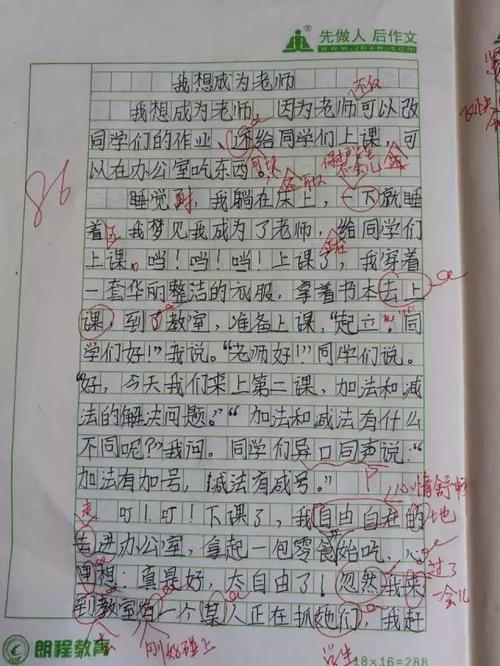 先做人 后作文
www.jbzw.com
86
我想成为老师
我想成为老师，因为老师可以改
同学们的作业，还给同学们上课，可
以在办公室吃东西。
睡觉时，我躺在床上，一下就睡
着了我梦见我成为了老师，给同学们
上课。当！当！当！上课了，我穿着
一套华丽整洁的衣服，拿着书本去上
课，到了教室，准备上课，“起立，同
学们好！”我说。“老师好！”同学们说。
“好，今天我们来上第二课，加法和减
法的解决问题。”“加法和减法有什么
不同呢？”我问。同学们异口同声说：“
加法有加号，减法有减号。”
心情舒畅
叮！叮！下课了，我自由自在的
地
走进办公室，拿起一包零食始吃，心
里想：真是好，太自由了！忽然我来
过了
一会儿
到教室 一个某人正在抓她们，我赶
刚好碰上
学生
朗程教育
18×16=288